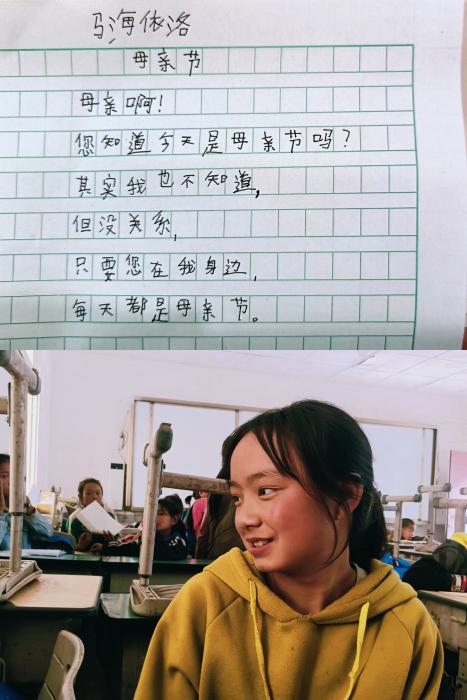 马海依洛
母亲节
母亲啊！
您知道今天是母亲节吗？
其实我也不知道，
但没关系，
只要您在我身边，
每天都是母亲节。